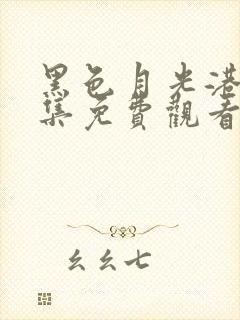 黑色月光港
集免費觀看
幺幺七